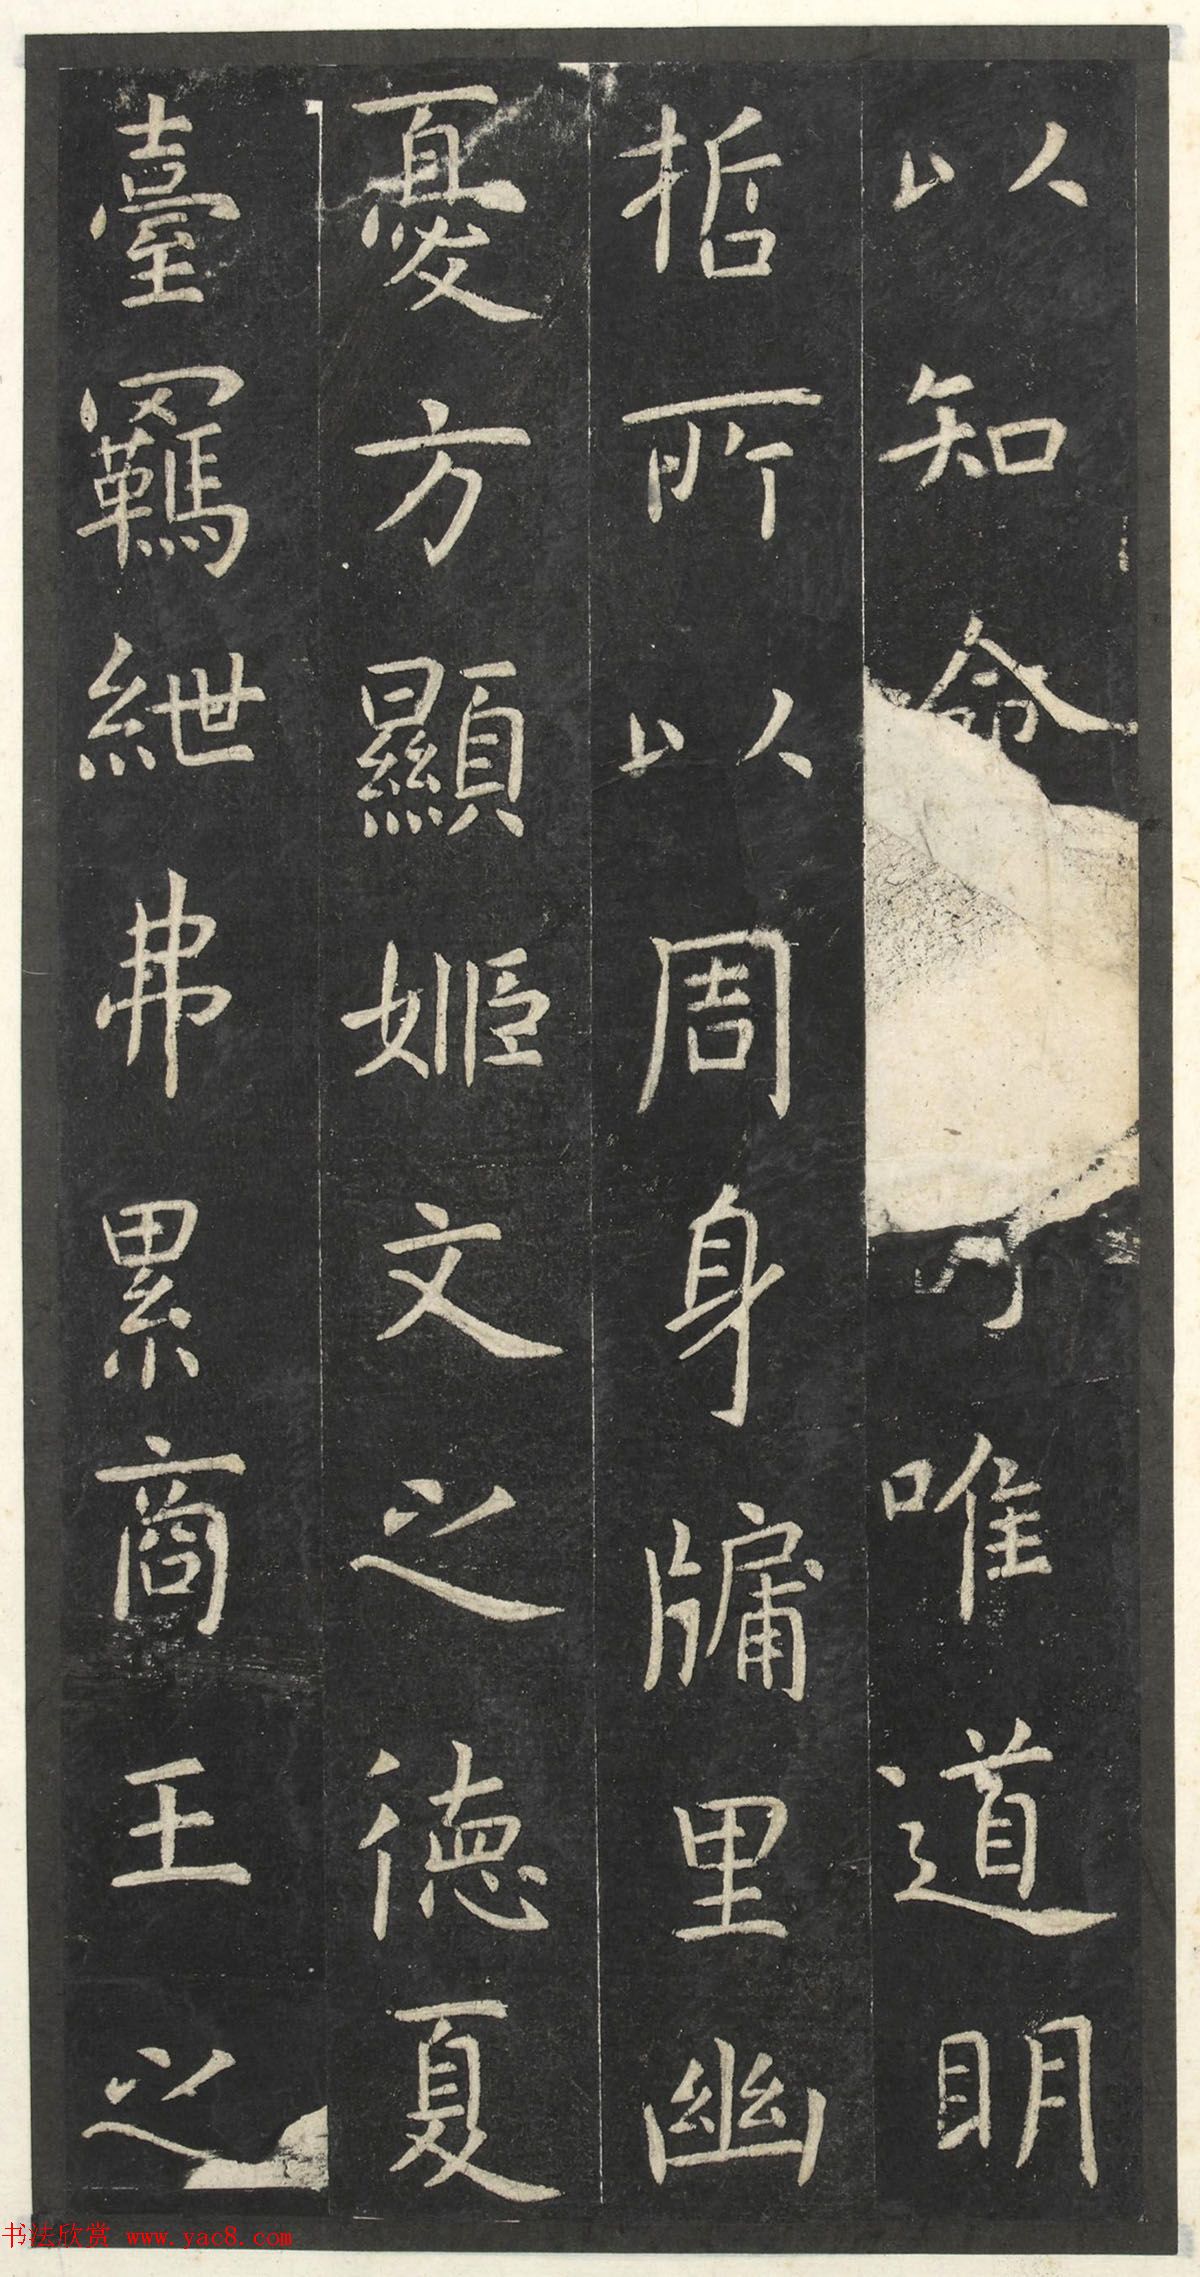 以知命唯道明
哲所以周身牖里幽
憂方顯姬文之德夏
臺羈紲弗累商王之
书法欣赏 www.yac8.com